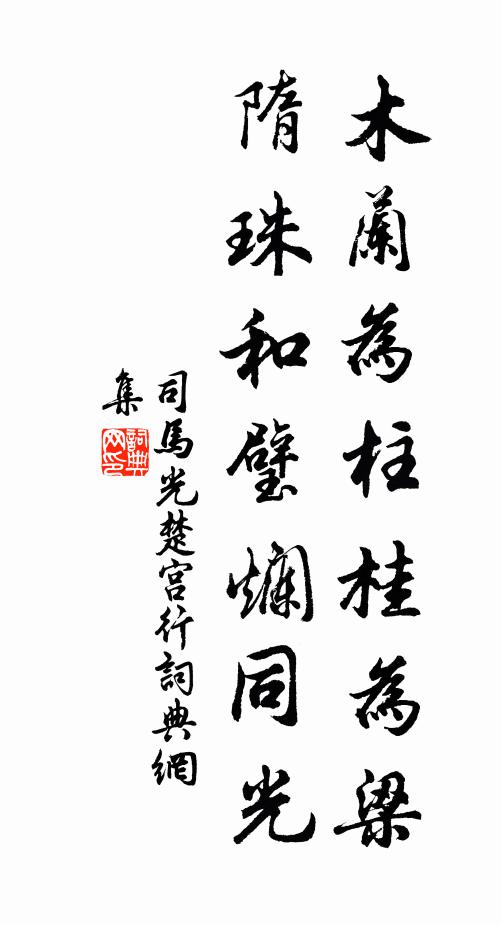 木蘭為柱桂為梁
隋珠和璧爛同光
司馬光楚宮行詞典網
集
詞典
网印